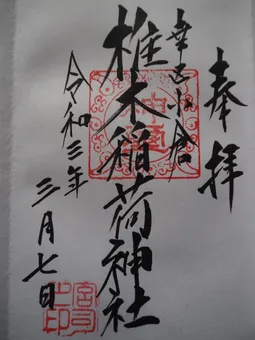 奉拝
幸古小倉
椎木稲荷神社
令和三年
三月七日
宮司之印